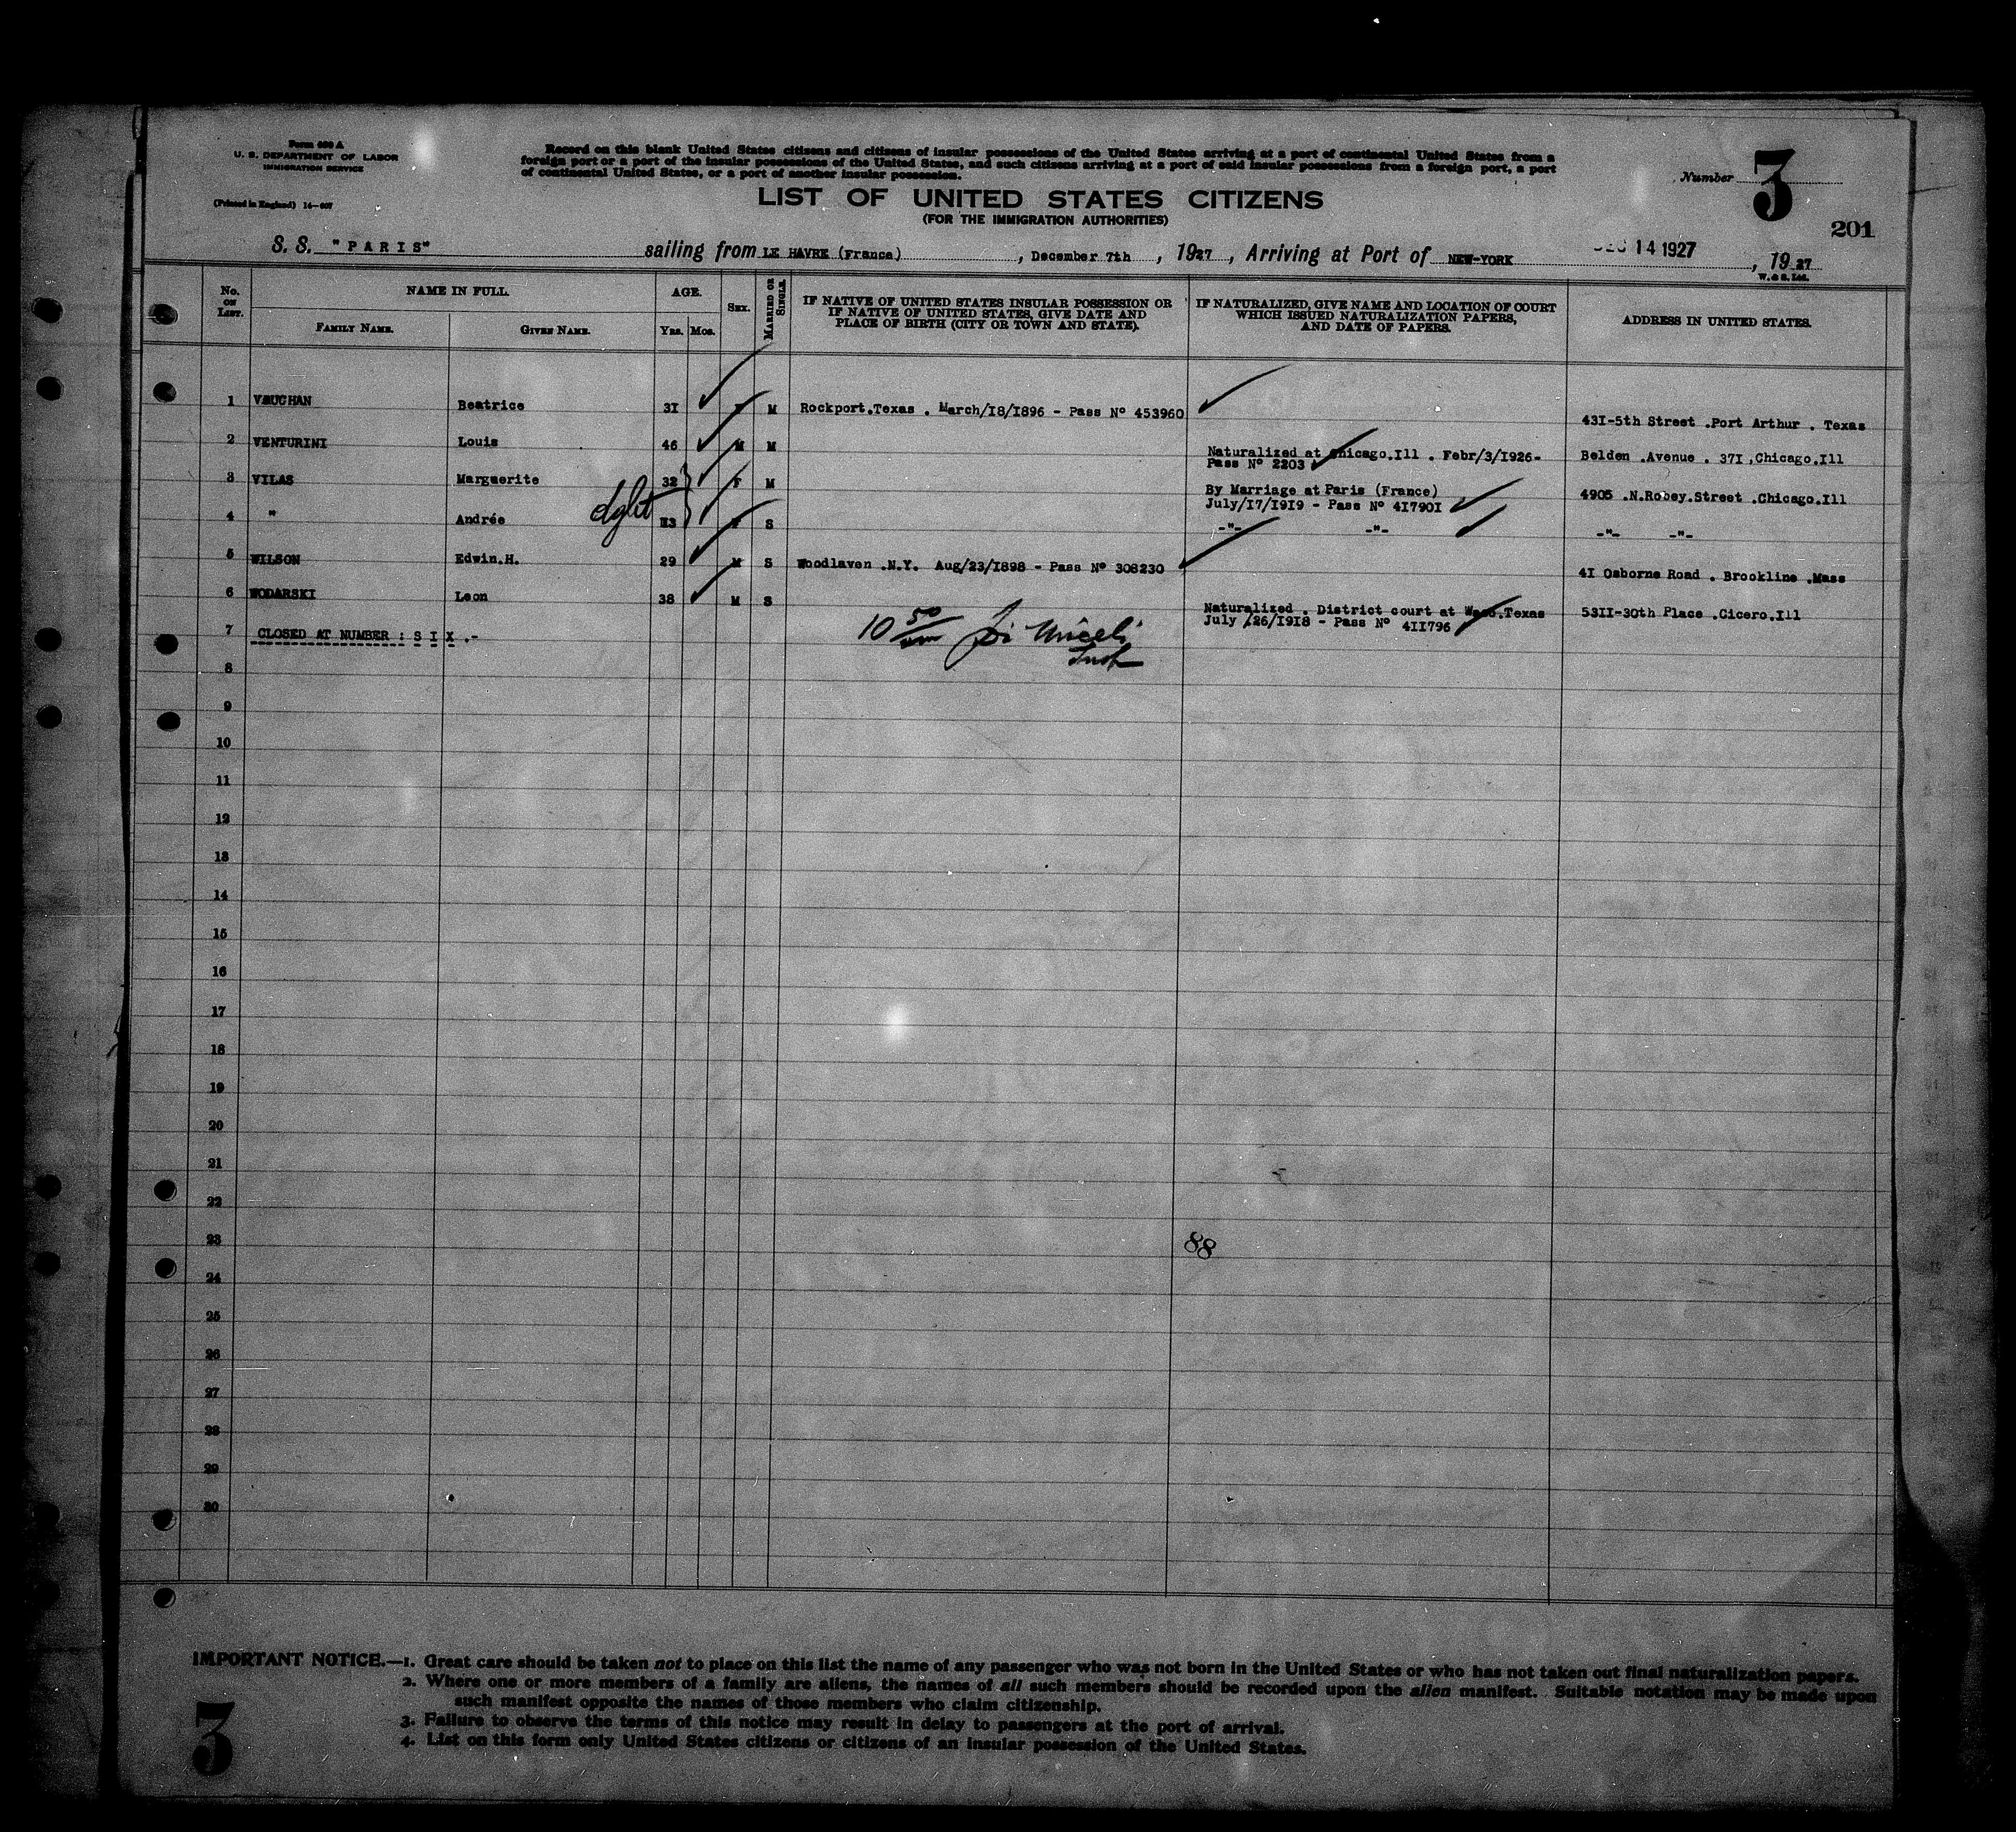 Form 630 A
U. S. DEPARTMENT OF LABOR
IMMIGRATION SERVICE
(Printed in England) 14—607
Record on this blank United States citizens and citizens of insular possessions of the United States arriving at a port of continental United States from a
foreign port or a port of the insular possessions of the United States, and such citizens arriving at a port of said insular possessions from a foreign port, a port
of continental United States, or a port of another insular possession.
LIST OF UNITED STATES CITIZENS
(FOR THE IMMIGRATION AUTHORITIES)
Number 3
201
S. S. "PARIS" sailing from LE HAVRE (France), December 7th, 1927, Arriving at Port of NEW-YORK 14 1927, 1927
W. & S. Ltd.
No. ON LIST. NAME IN FULL. AGE. SEX. MARRIED OR SINGLE. IF NATIVE OF UNITED STATES INSULAR POSSESSION OR IF NATIVE OF UNITED STATES, GIVE DATE AND PLACE OF BIRTH (CITY OR TOWN AND STATE). IF NATURALIZED, GIVE NAME AND LOCATION OF COURT WHICH ISSUED NATURALIZATION PAPERS, AND DATE OF PAPERS. ADDRESS IN UNITED STATES.
FAMILY NAME. GIVEN NAME. Yrs. Mos.
1 VAUGHAN Beatrice 3I F M Rockport.Texas . March/I8/I896 - Pass Nº 453960 43I-5th Street .Port Arthur . Texas
2 VENTURINI Louis 46 M M Naturalized at Chicago.Ill . Febr/3/I926- Belden .Avenue . 37I ,Chicago.Ill
Pass Nº 2203
3 VILAS Marguerite 32 F M By Marriage at Paris (France) 4905 .N.Robey.Street .Chicago.Ill
July/I7/I9I9 - Pass Nº 4I790I
4 " Andrée dght I3 F S -"- -"- -"- -"-
5 WILSON Edwin.H. 29 M S Woodlaven .N.Y. Aug/23/I898 - Pass Nº 308230 4I Osborne Road . Brookline .Mass
6 WODARSKI Leon 38 M S Naturalized . District court at Waco.Texas 53II-30th Place .Cicero.Ill
July /26/I9I8 - Pass Nº 4II796
7 CLOSED AT NUMBER : S I X .-
10 50 am Miceli
Insp
8
9
10
11
12
13
14
15
16
17
18
19
20
21
22
23
88
24
25
26
27
28
29
30
IMPORTANT NOTICE.—1. Great care should be taken not to place on this list the name of any passenger who was not born in the United States or who has not taken out final naturalization papers.
2. Where one or more members of a family are aliens, the names of all such members should be recorded upon the alien manifest. Suitable notation may be made upon
such manifest opposite the names of those members who claim citizenship.
3. Failure to observe the terms of this notice may result in delay to passengers at the port of arrival.
4. List on this form only United States citizens or citizens of an insular possession of the United States.
3